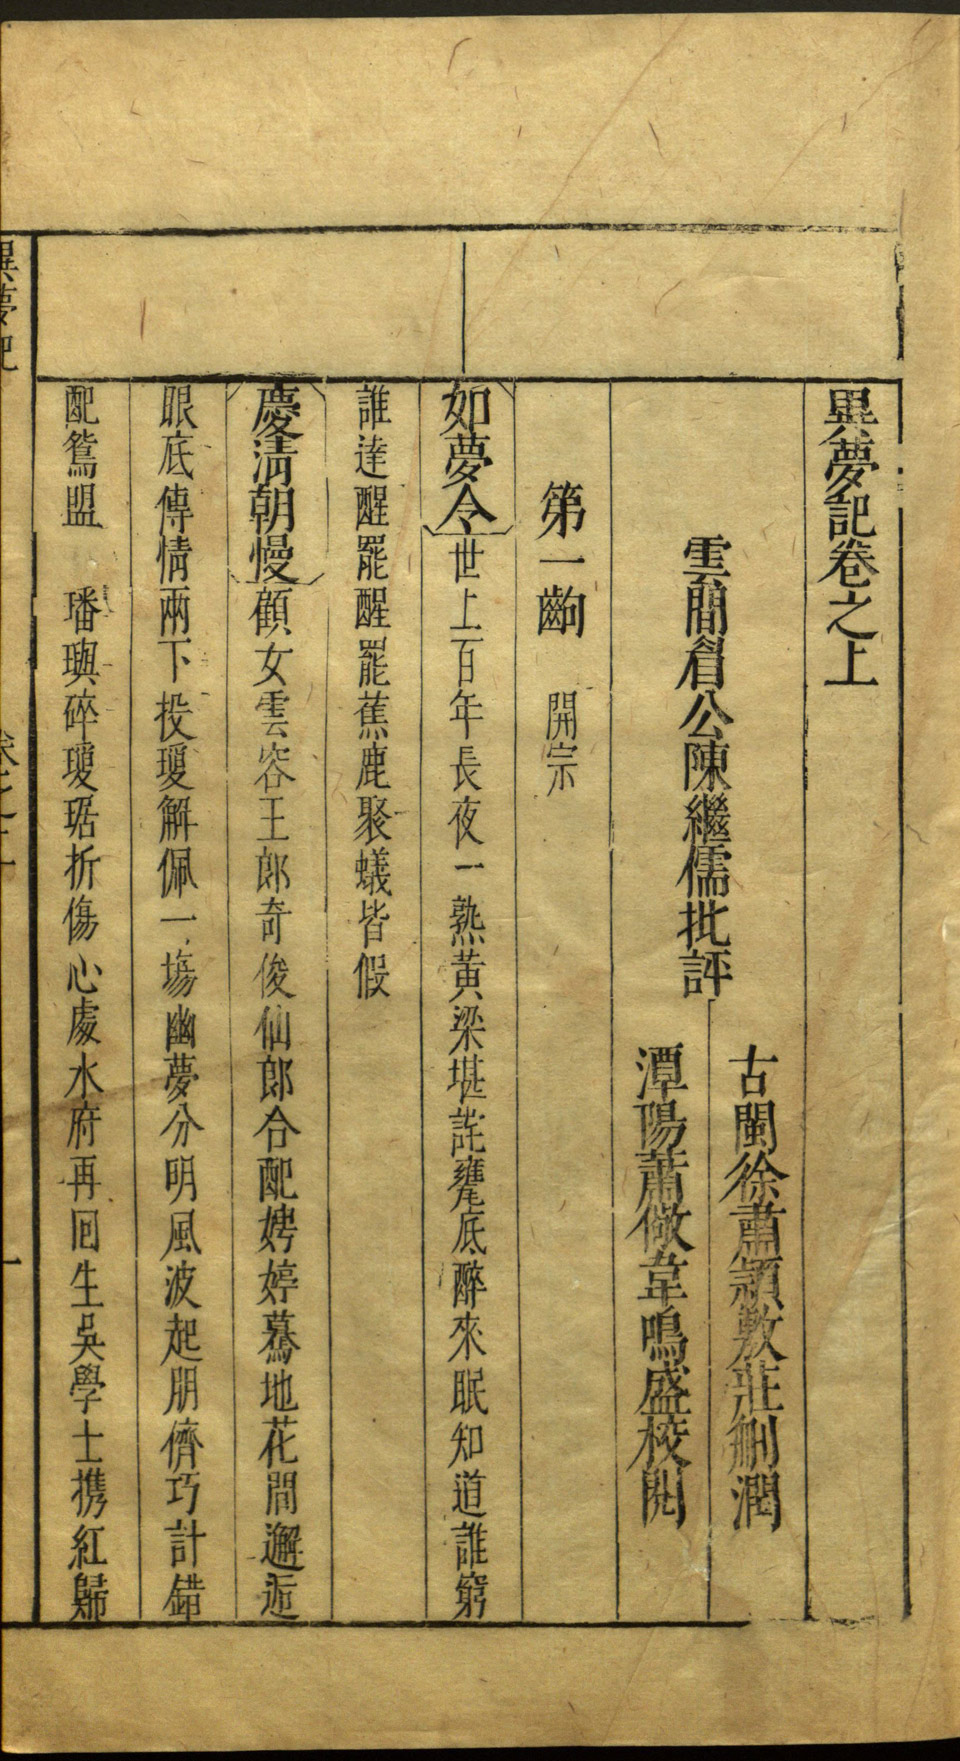 異夢記卷之上
雲間眉公陳繼儒批評
古閩徐肅頴敷莊刪潤
潭陽蕭儆韋鳴盛校閱
第一齣　開宗
如夢令世上百年長夜一熟黄梁堪詫甕底醉來眠知道誰窮
誰達醒罷醒罷蕉鹿聚蟻皆假
慶清朝慢顧女雲容王郎奇俊仙郎合配娉婷驀地花間邂逅
眼底傳情兩下投瓊解佩一塲幽夢分明風波起朋儕巧計錯
配鴛盟　璠璵碎瓊琚折傷心處水府再回生吳學士携紅歸
異夢記
卷之上
一